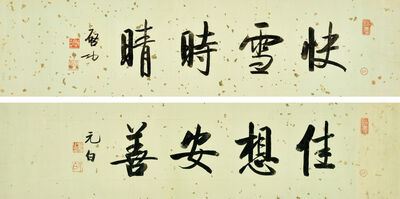 快雪時晴
啓功
佳想安善
元白